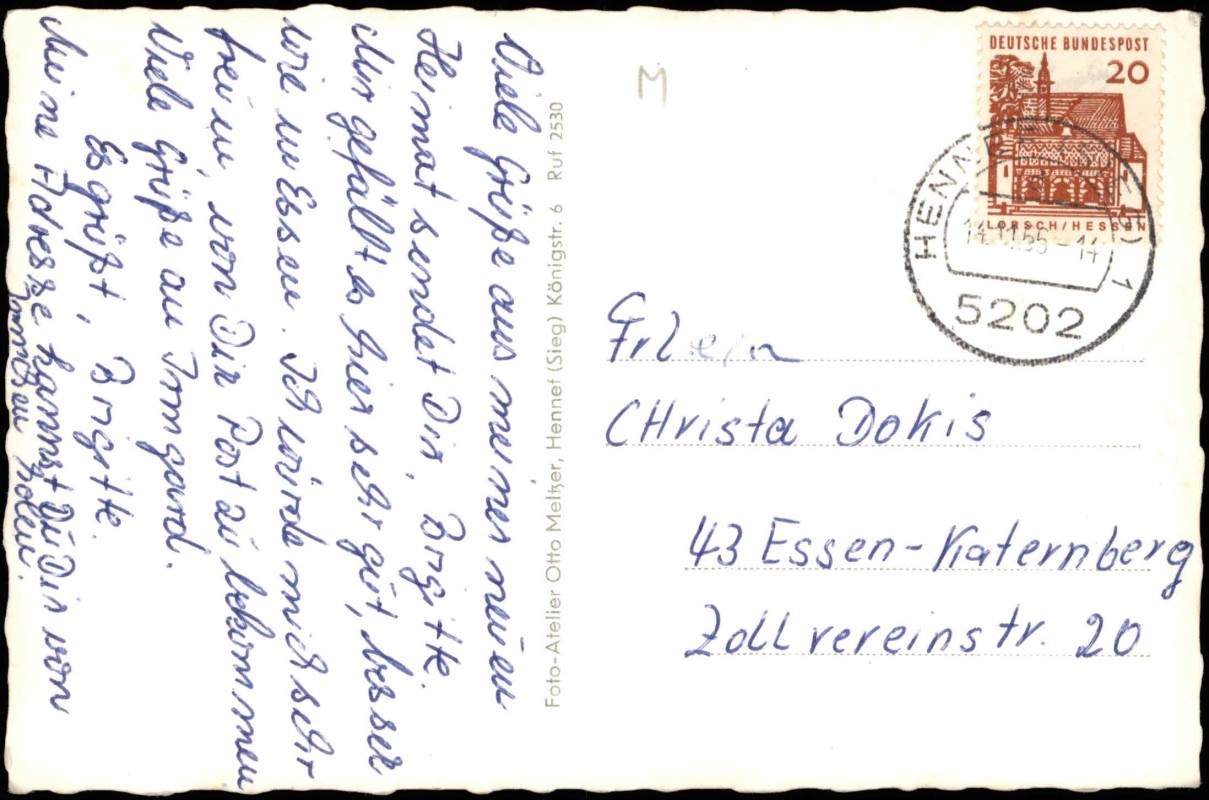 Viele Grüße aus meiner neuen
Heimat sendet Dir, Brigitte.
Mir gefällt es hier sehr gut, besser
wie in Essen. Ich würde mich sehr
freuen, von Dir Post zu bekommen.
Viele Grüße an Irmgard.
Es grüßt, Brigitte.
Meine Adresse kannst Du Dir von
holen.
Foto-Atelier Otto Meltzer, Hennef (Sieg) Königstr. 6 Ruf 2530
M
DEUTSCHE BUNDESPOST
20
LORSCH/HESSEN
HENNEF 1
-14
5202
Frl
CHrista Dokis
43 Essen-Katernberg
Zollvereinstr. 20